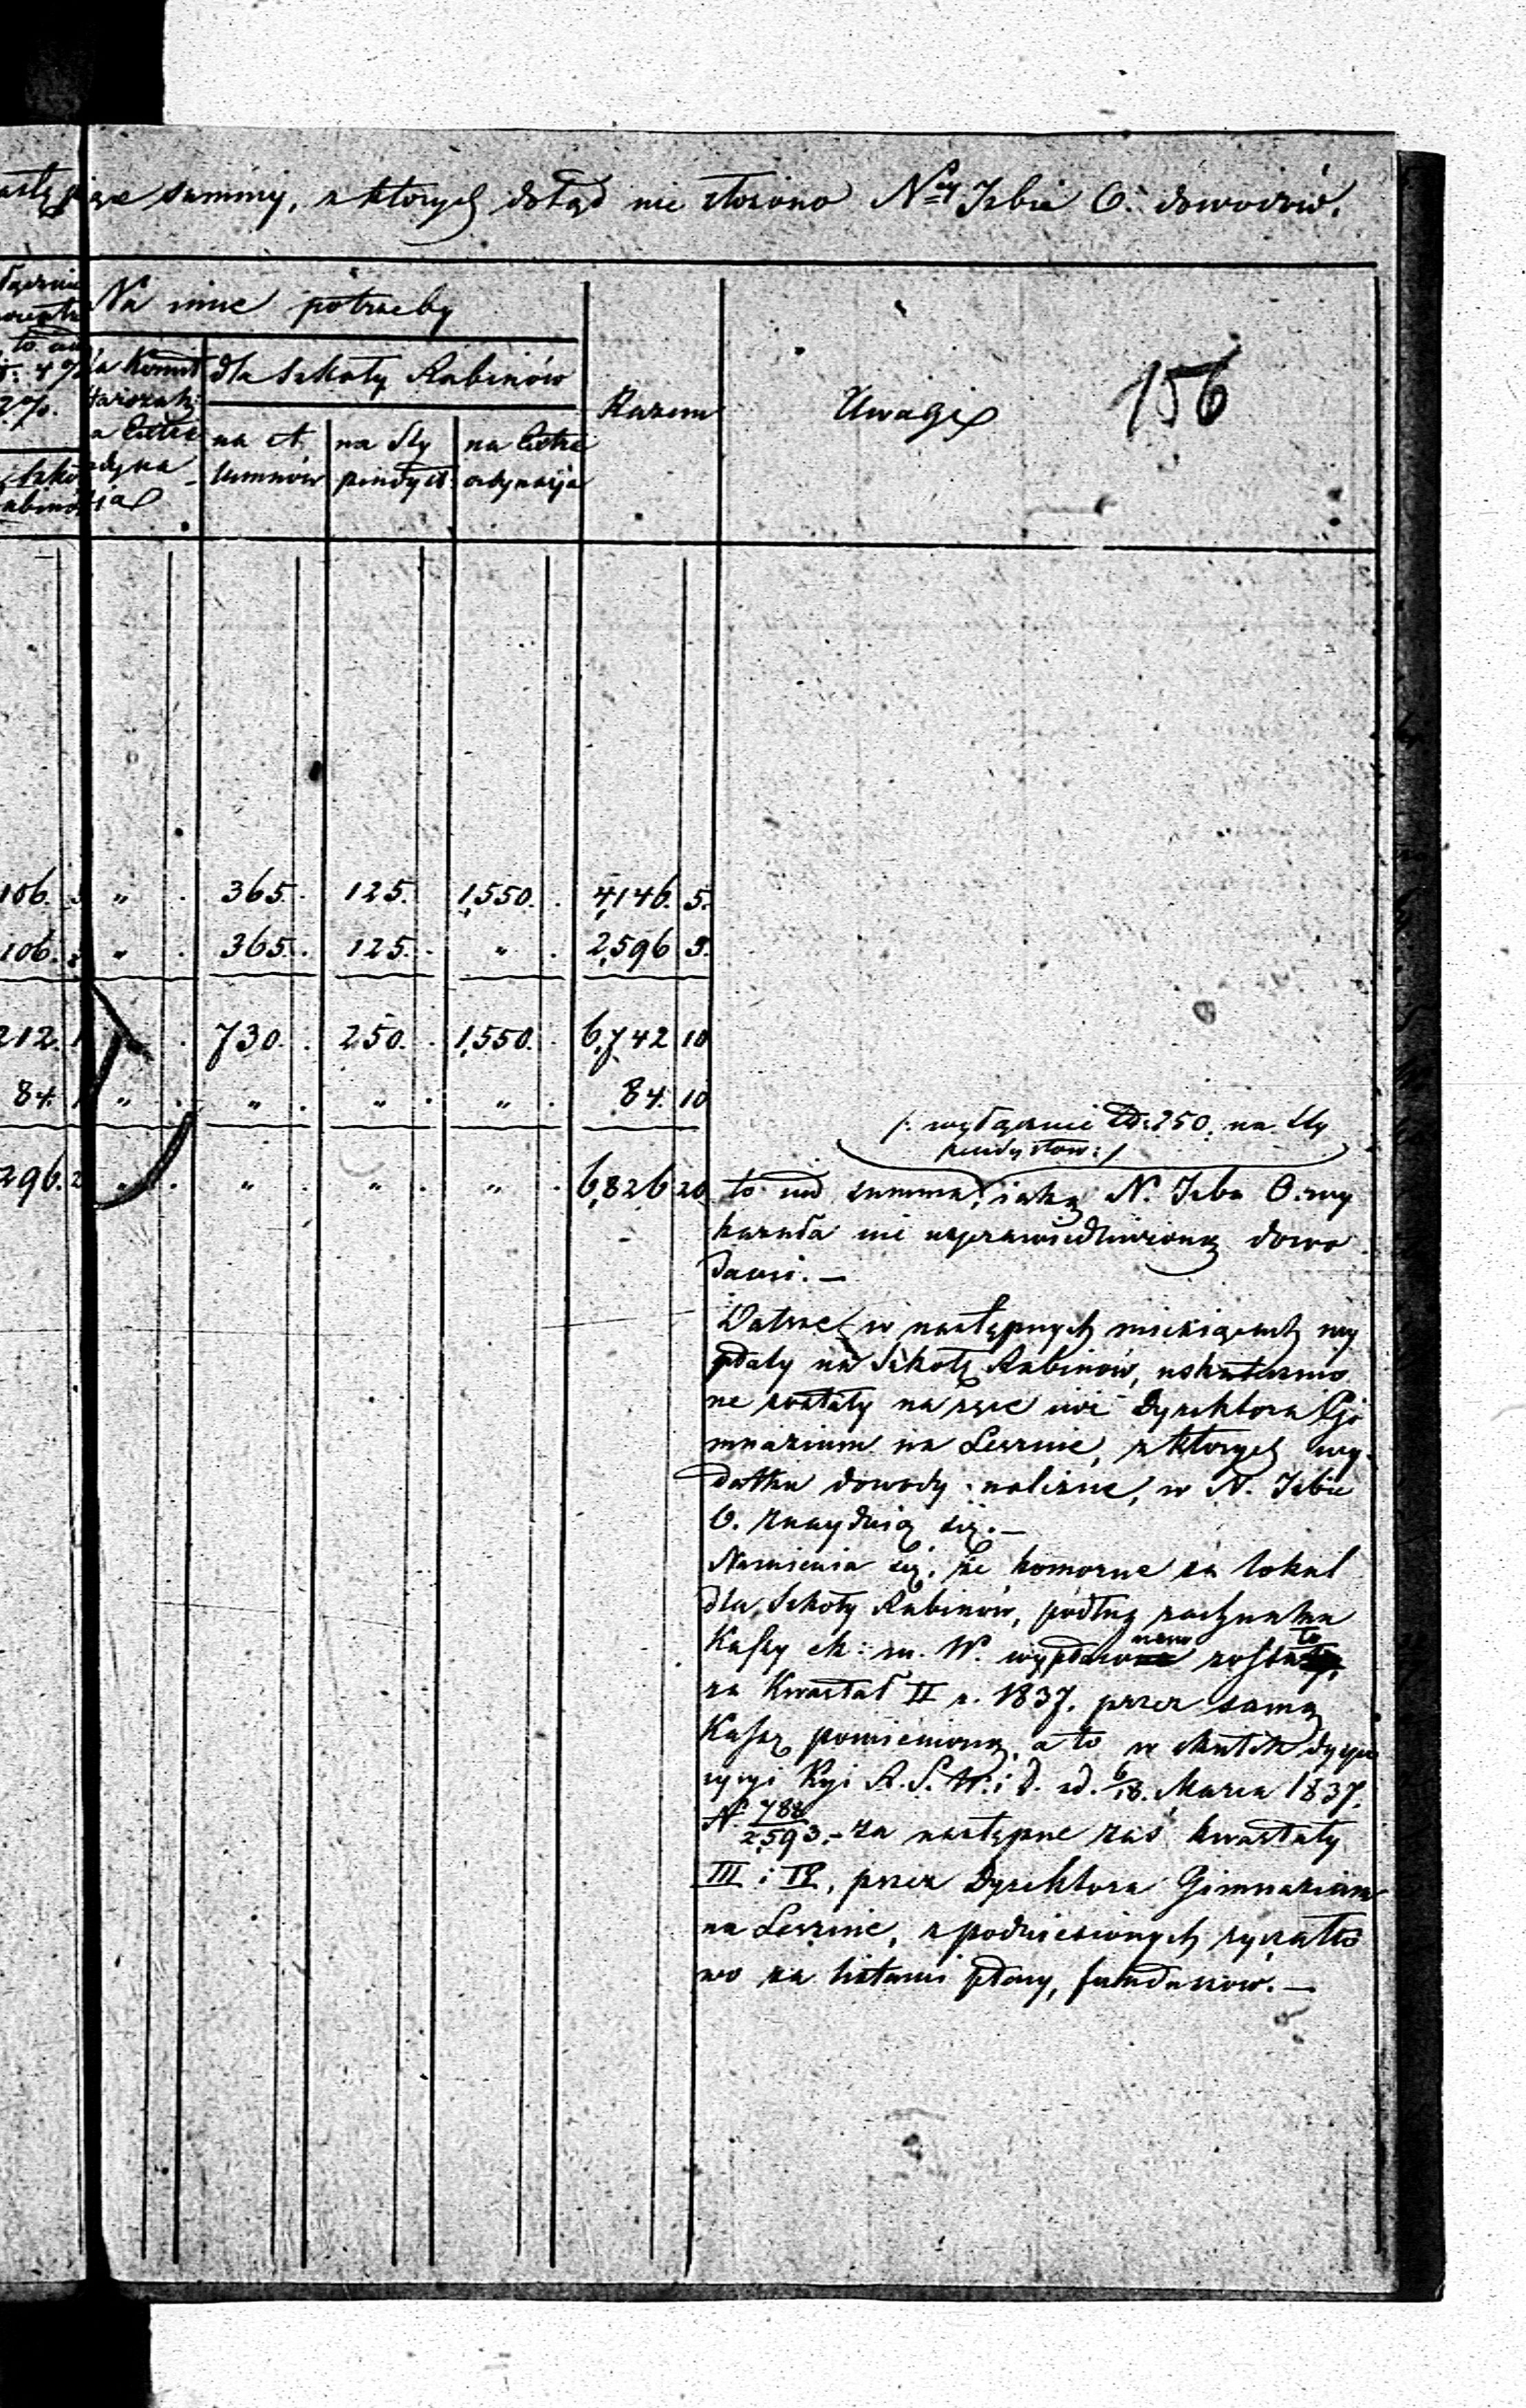 summy, z których dotąd nie złożono N<sup>ey</sup> Izbie O. dowodów.
Na inne potrzeby
dla Szkoły Rabinów
Razem
Uwagi
156
na A,
lumnów
na Sty
pendyst:
na Extra
ordynaryja
106. " . 365. . 125. 1,550. . 4,146. 5.
106. " . 365. . 125. . " . 2,596 5.
212. . 730. . 250. . 1,550. . 6,742 10
84. " . " . " . " . 84. 10
/: wyłącznie Zł: 250. na Sty
pendystów :/
296. " . " . " . " . 6,826 20 to iest summa, iaką N. Izba O. wy
kazała nie usprawiedliwioną dowo
dami. —
w następnych miesiącach wy
płaty na Szkołę Rabinów, uskutecznio
ne zostały na ręce Dyrektora Gi
mnazium na Lesznie, z których wy-
datku dowody należne, w N. Izbie
O. znaydują się. —
Namienia się, że komorne za lokal
dla Szkoły Rabinów, podług rachunku
Kassy Ek: m. W. wypłacono zostało
za Kwartał II r. 1837. przez samą
Kassę pomienioną, a to w skutek dyspo
zycyi Kyi R. S. W. i D. z d. 6/18. Marca 1837.
N. 788/2,593. — za następne zaś kwartały
III i IV, przez Dyrektora Gimnazium
na Lesznie, z podniesionych ryczałto
wo za listami płacy, funduszów. —